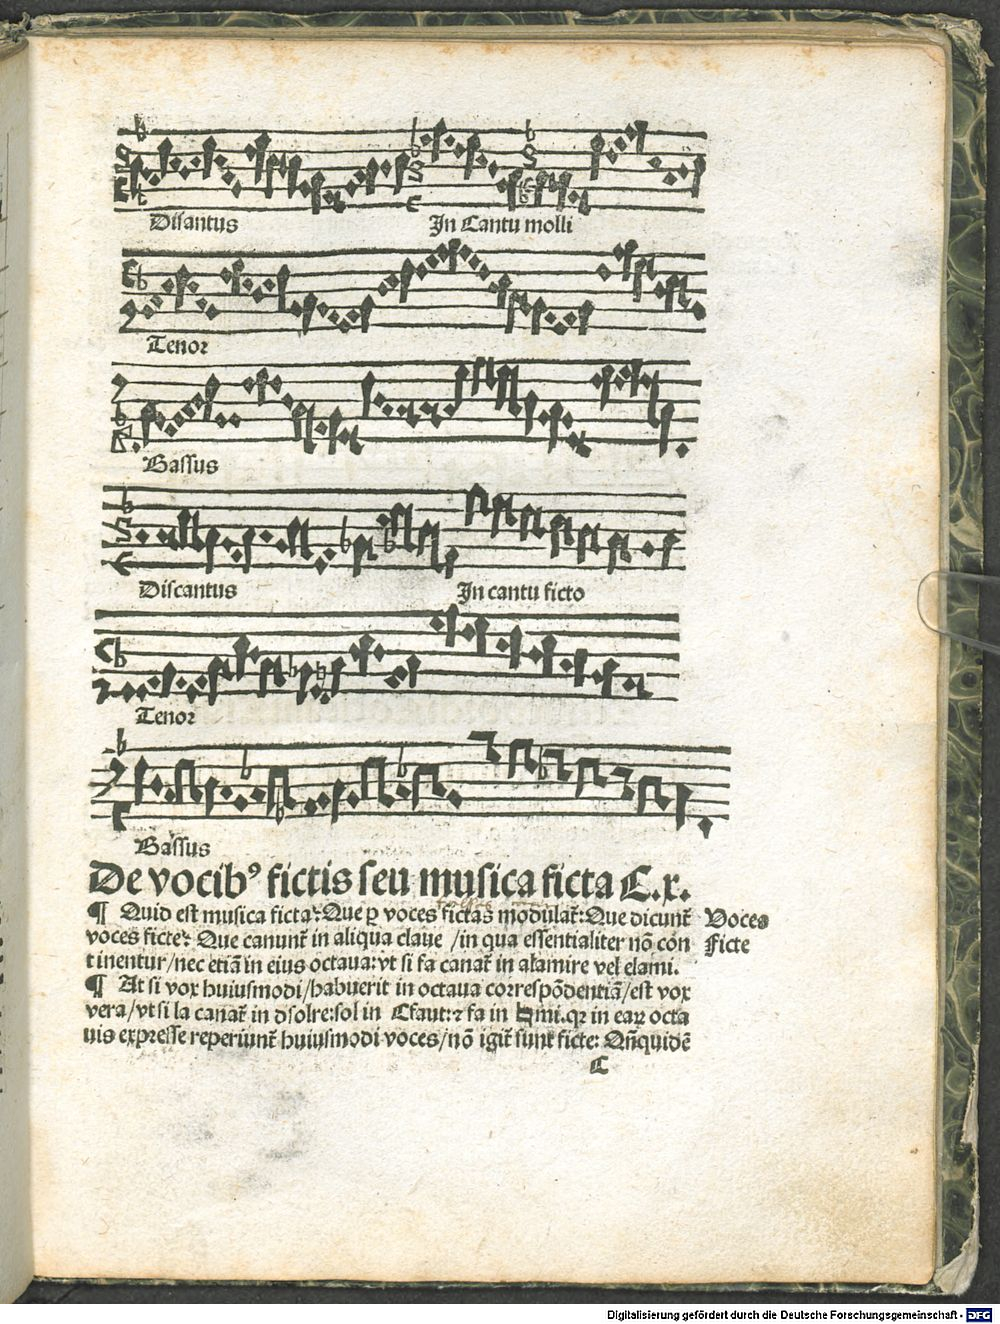 Disantus In Cantu molli
Tenor
Bassus
Discantus In cantu ficto
Tenor
Bassus
De vocibꝰ fictis seu musica ficta C.x.
¶ Quid est musica ficta? Que ꝑ voces fictas modulat᷑: Que dicunt᷑ Voces
voces ficte? Que canunt᷑ in aliqua claue /in qua essentialiter nō con Ficte
tinentur/nec etiā in eius octaua: vt si fa canat᷑ in alamire vel elami.
¶ At si vox huiusmodi/habuerit in octaua correspōdentiā/est vox
vera/vt si la canat᷑ in dsolre: sol in Cfaut: ⁊ fa in ♮mi. qꝛ in eaꝝ octa
uis expresse reperiunt᷑ huiusmodi voces/nō igit᷑ sunt ficte: Qn̄quidē
C
Digitalisierung gefördert durch die Deutsche Forschungsgemeinschaft - DFG